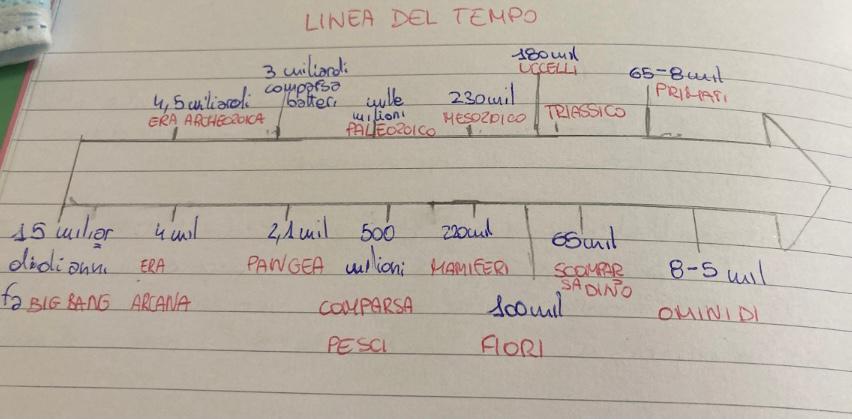 LINEA DEL TEMPO
4,5 miliardi
ERA ARCHEOZOICA
3 miliardi
comparsa
batteri
mille
milioni
PALEOZOICO
230mil
MESOZOICO
180mil
UCCELLI
TRIASSICO
65-8mil
PRIMATI
15 miliar
didi anni
fa BIG BANG
4 mil
ERA
ARCANA
2,1 mil
PANGEA
500
milioni
COMPARSA
PESCI
220mil
MAMIFERI
100mil
FIORI
65mil
SCOMPAR
SA DINO
8-5 mil
OMINIDI